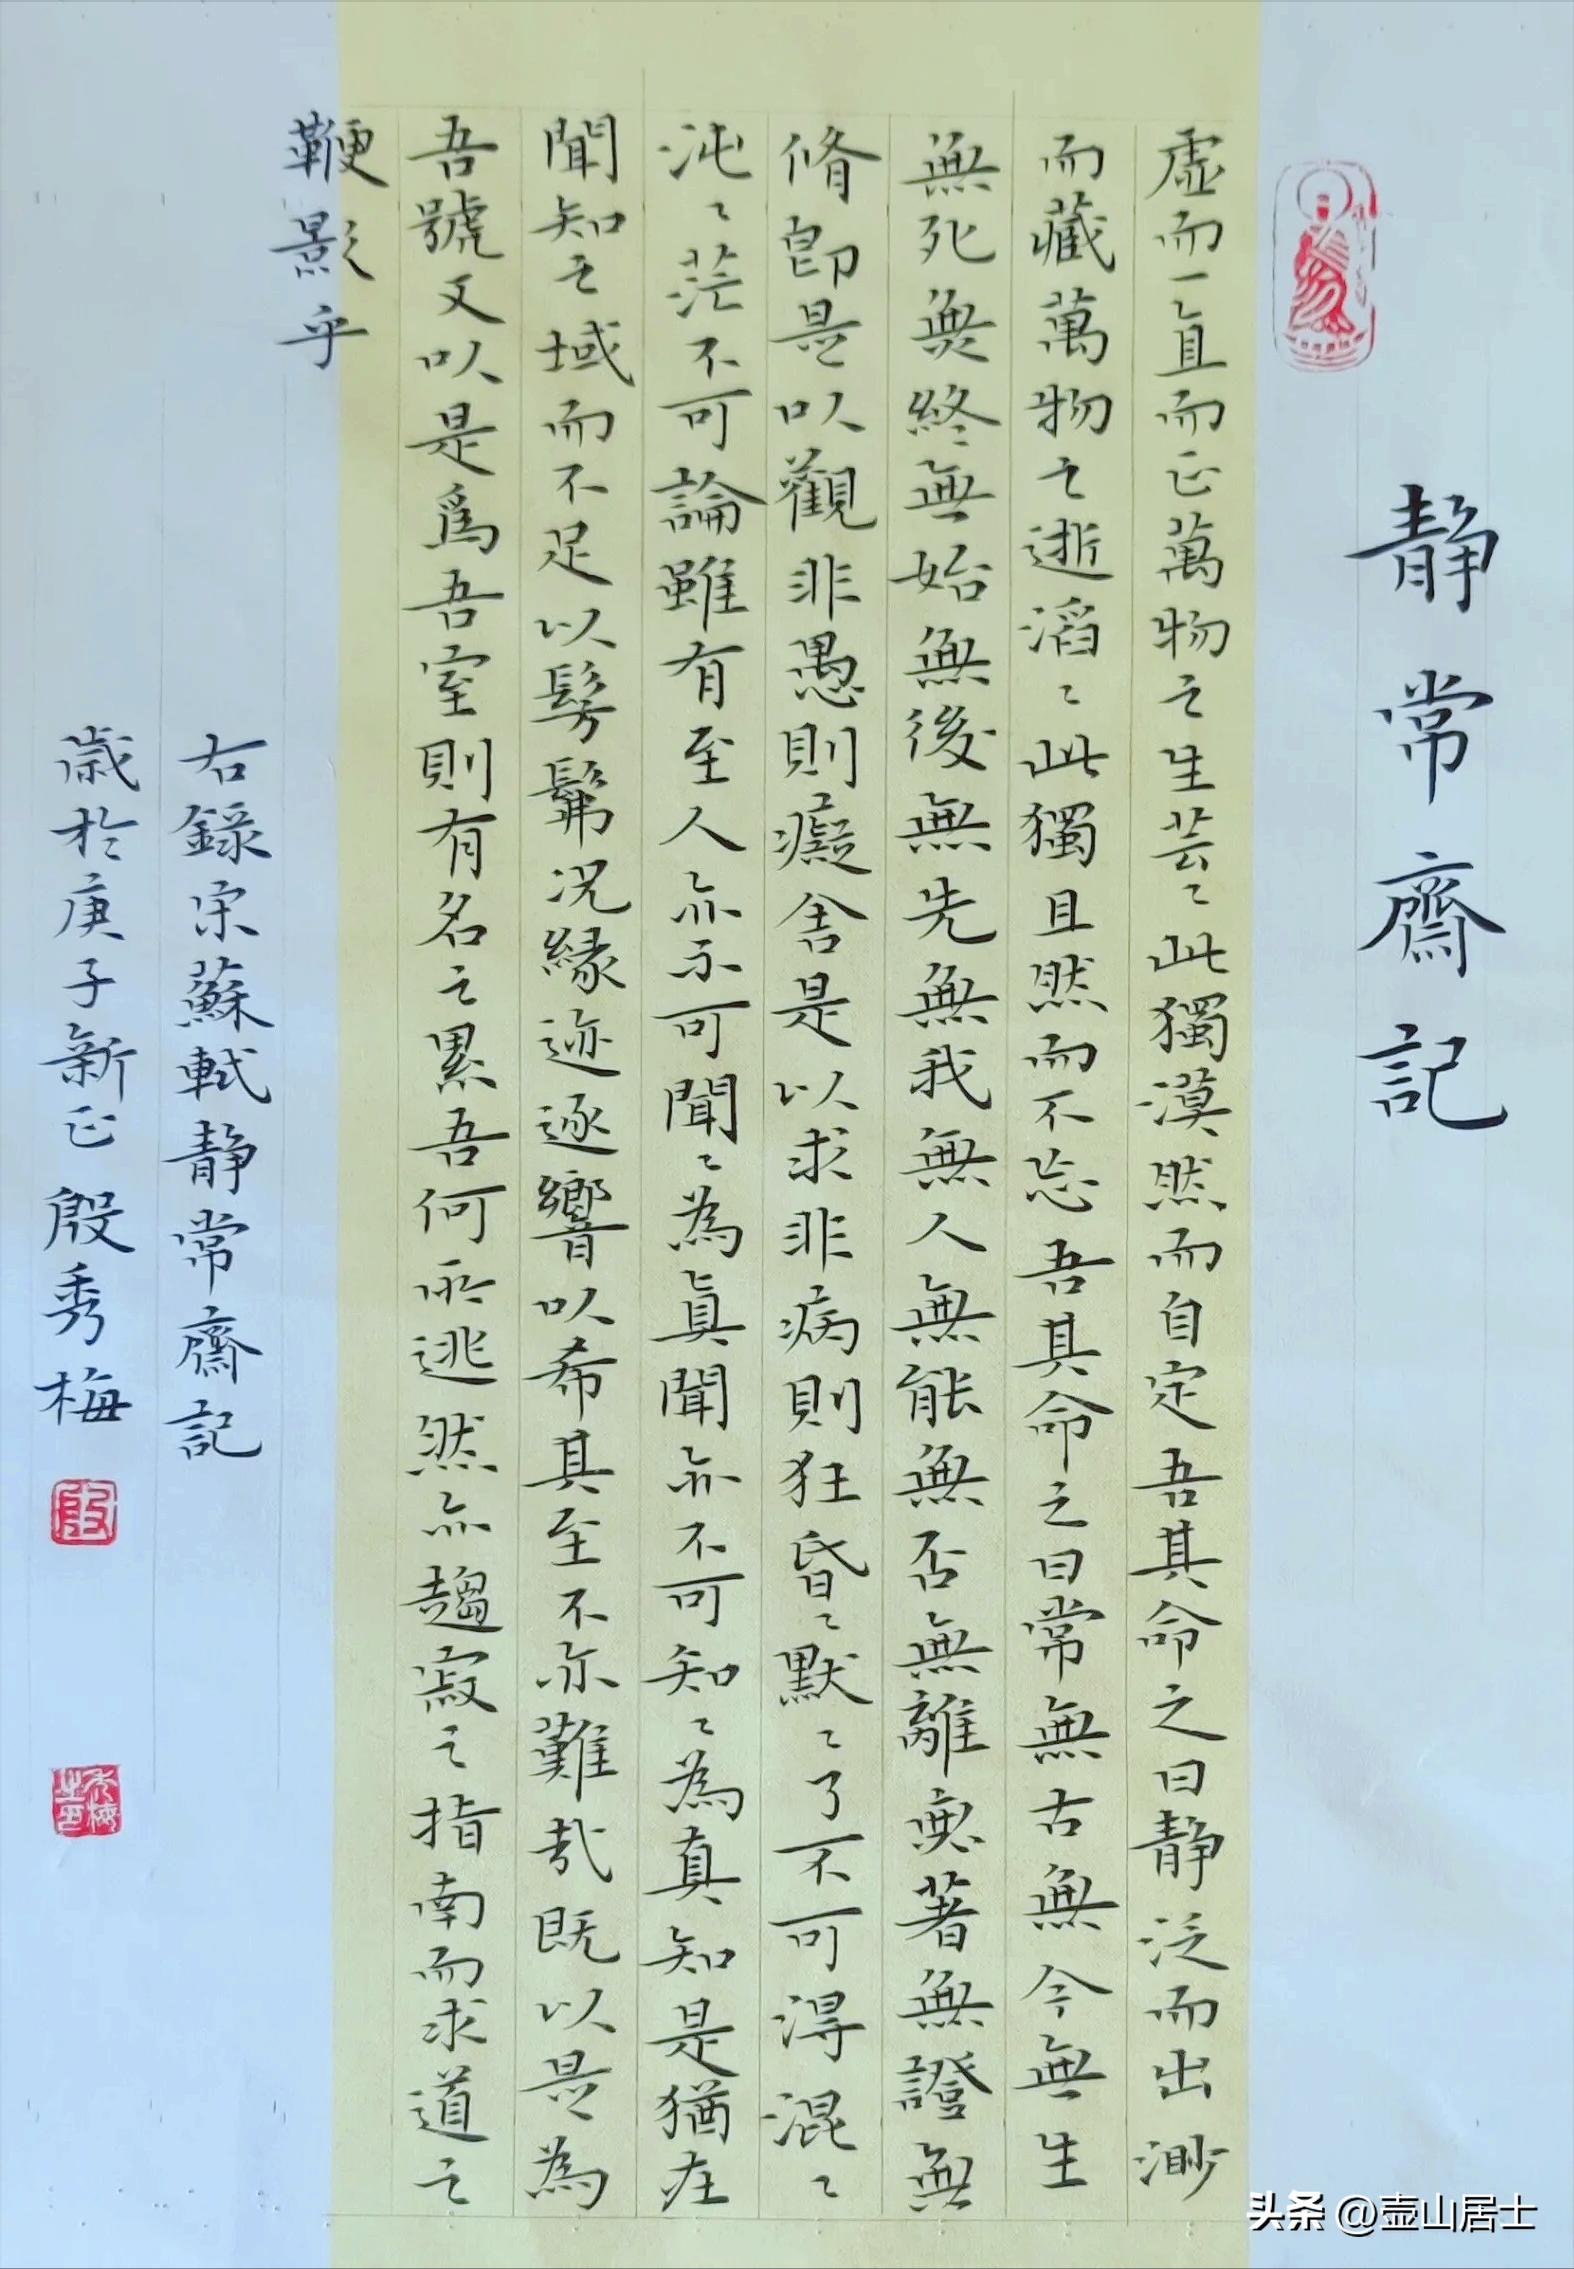 靜常齋記
虛而一直而正萬物之生芸〻此獨漠然而自定吾其命之曰靜泛而出渺
而藏萬物之逝滔〻此獨且然而不忘吾其命之曰常無古無今無生
無死無終無始無後無先無我無人無能無否無離無著無證無
脩即是以觀非愚則癡舍是以求非病則狂昏〻默〻了不可得混〻
沌〻茫不可論雖有至人亦不可聞〻為真聞亦不可知〻為真知是猶在
聞知之域而不足以髣髴況緣迹逐響以希其至不亦難哉既以是為
吾號又以是爲吾室則有名之累吾何所逃然亦趨寂之指南而求道之
鞭影乎
右錄宋蘇軾靜常齋記
歲於庚子新正殷秀梅
头条 @壶山居士